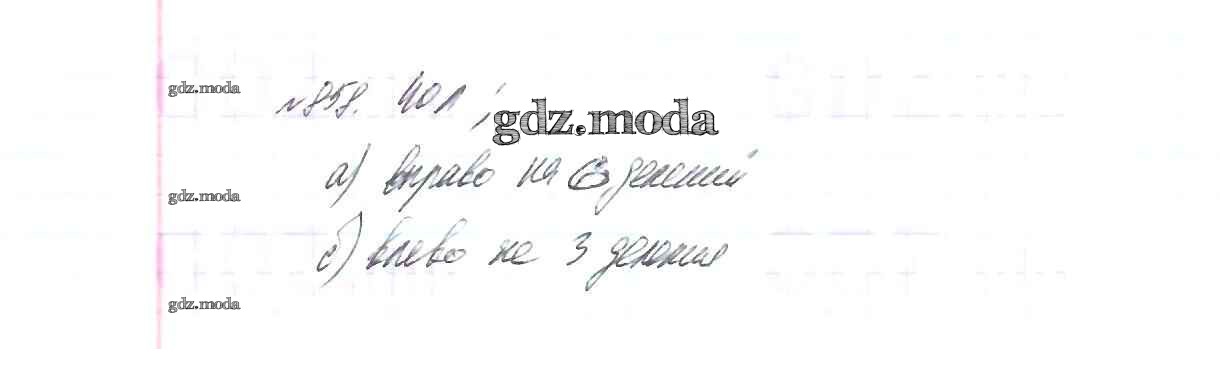 gdz.moda
№858. 40 л;
gdz.moda
а) вправо на 6 делений
gdz.moda
б) влево на 3 деления
gdz.moda